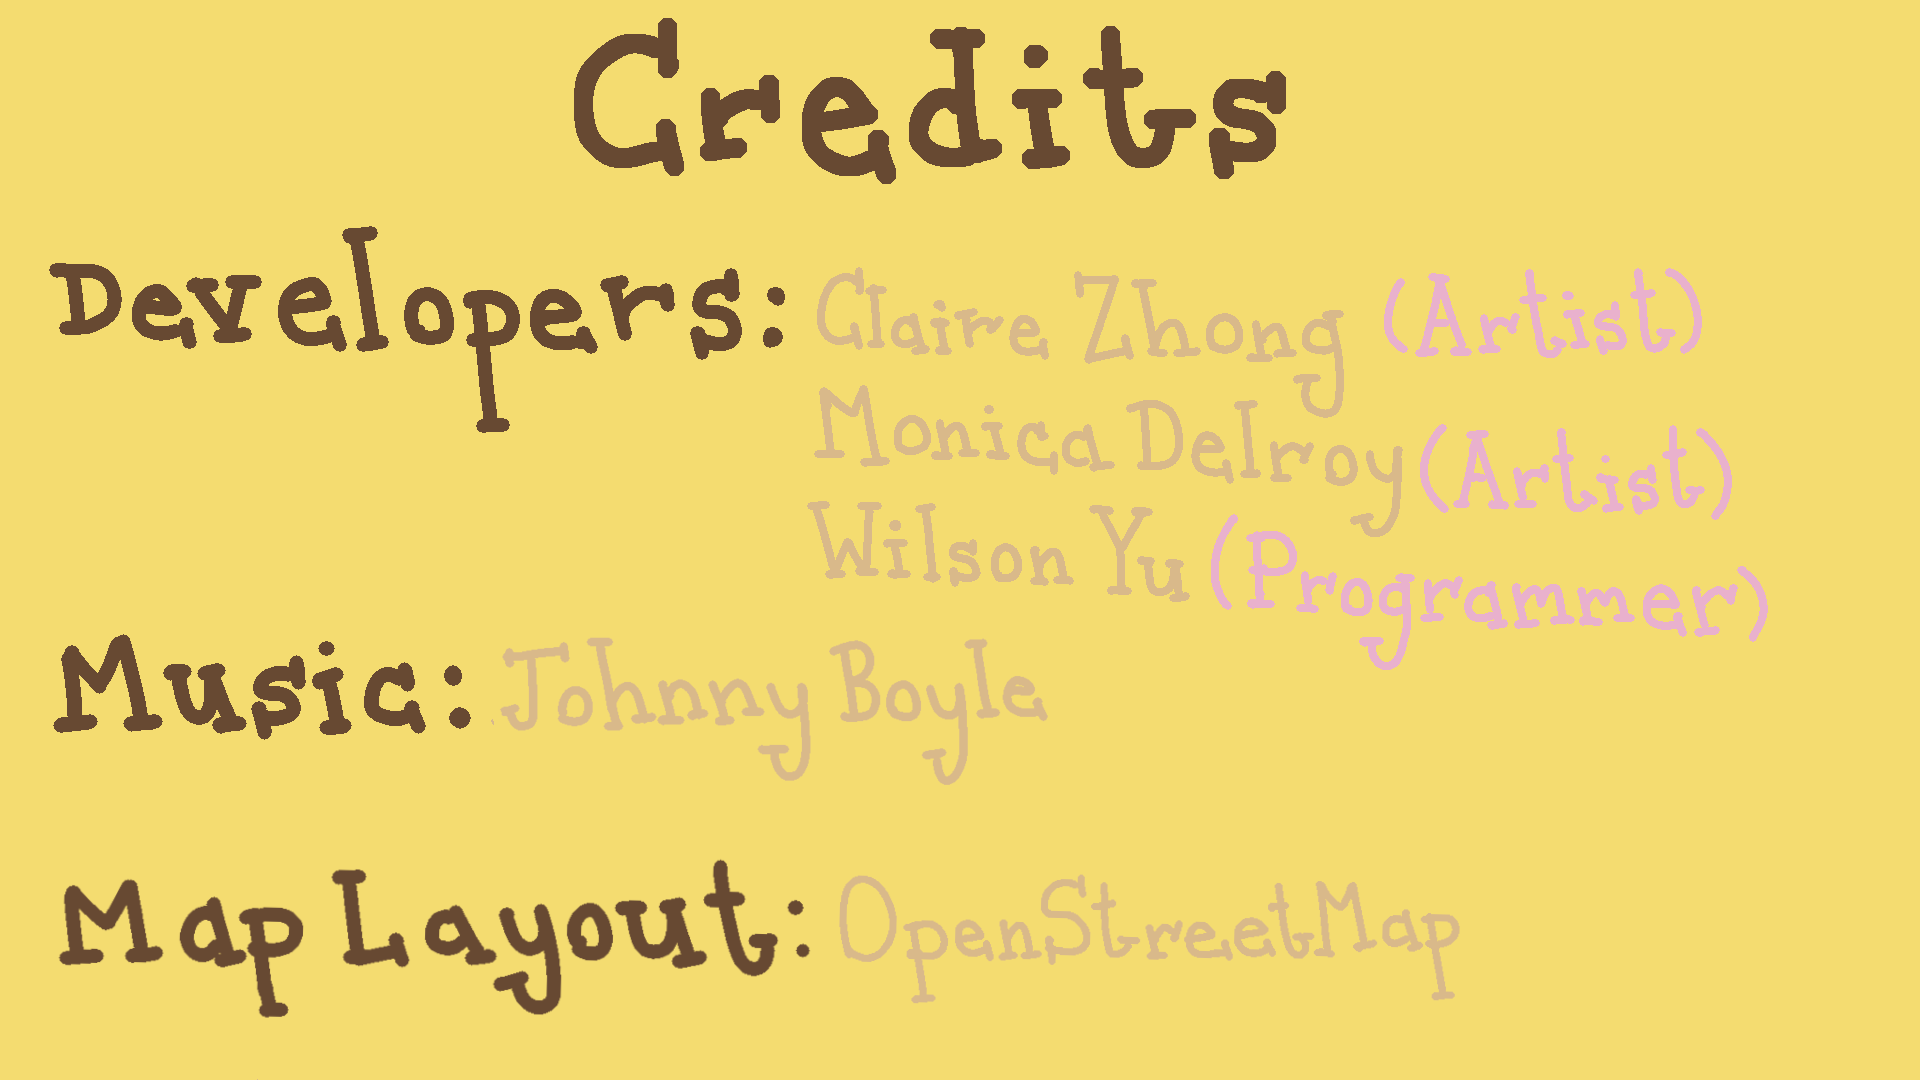 Credits
Developers: Claire Zhong (Artist)
Monica Delroy (Artist)
Wilson Yu (Programmer)
Music: Johnny Boyle
Map Layout: OpenStreetMap